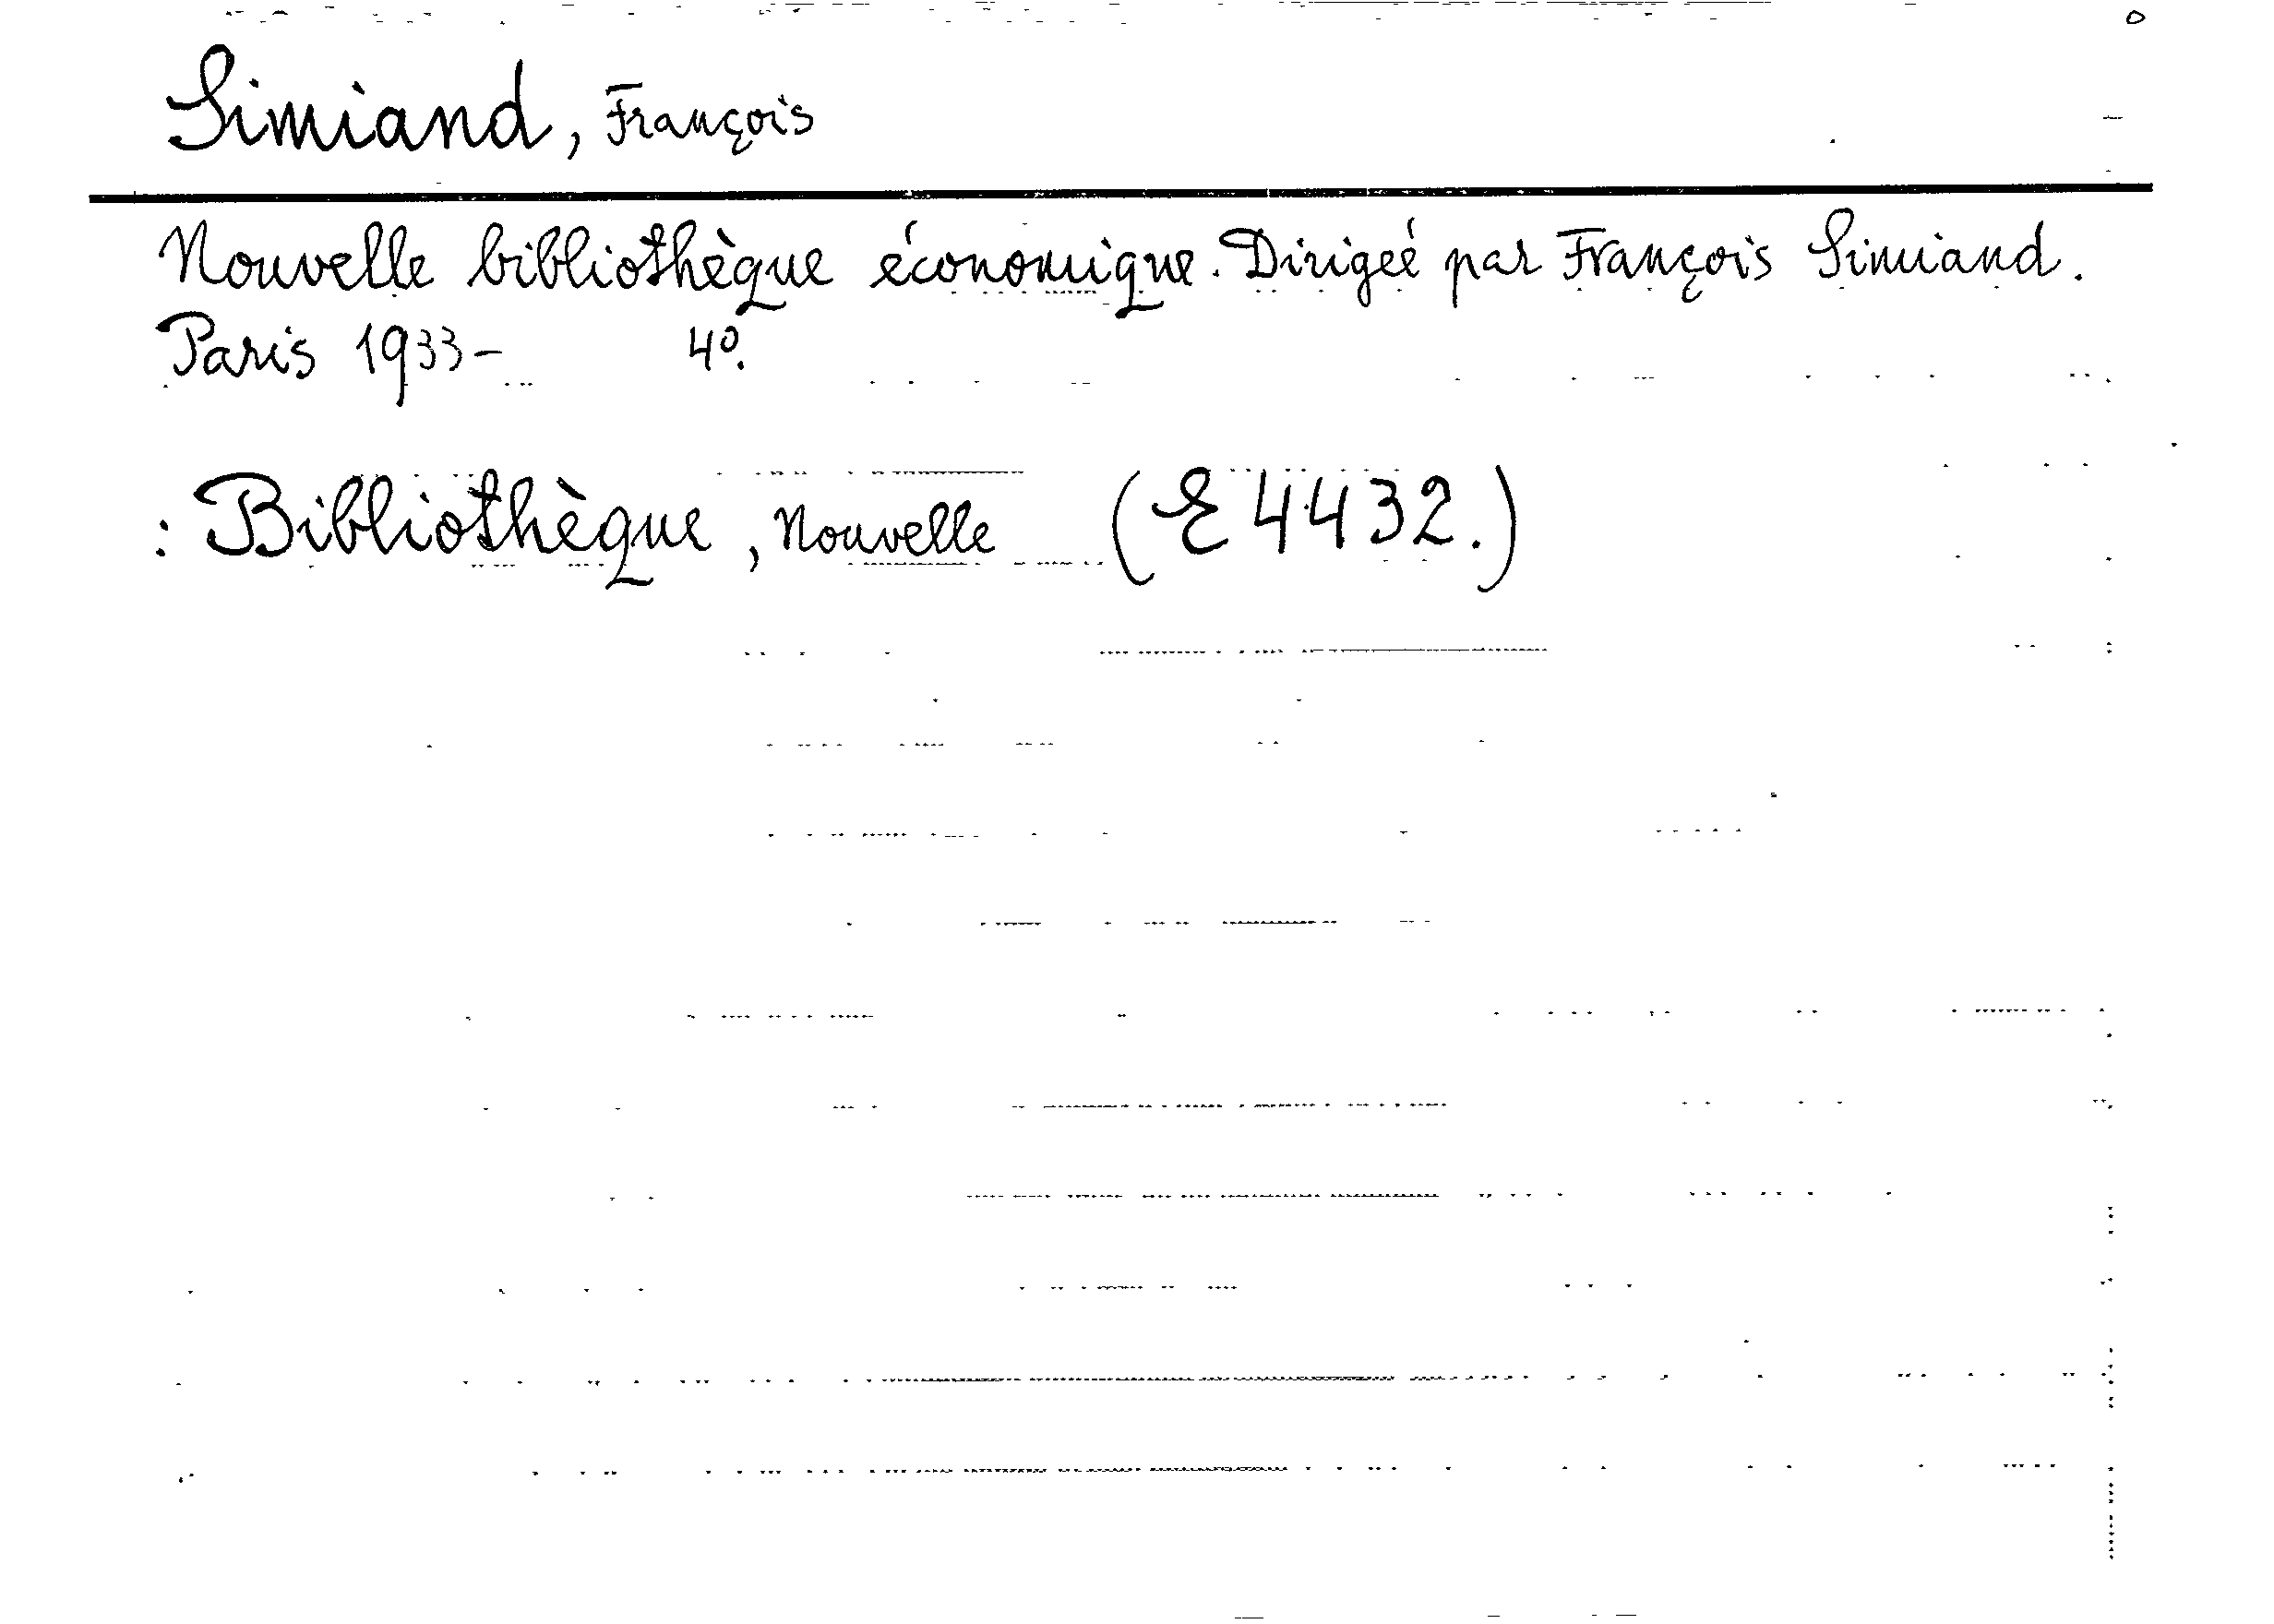 Simiand, François
Nouvelle bibliothèque économique. Dirigeé par François Simiand.
Paris 1933- 4º.
: Bibliothèque, Nouvelle (E 4432.)